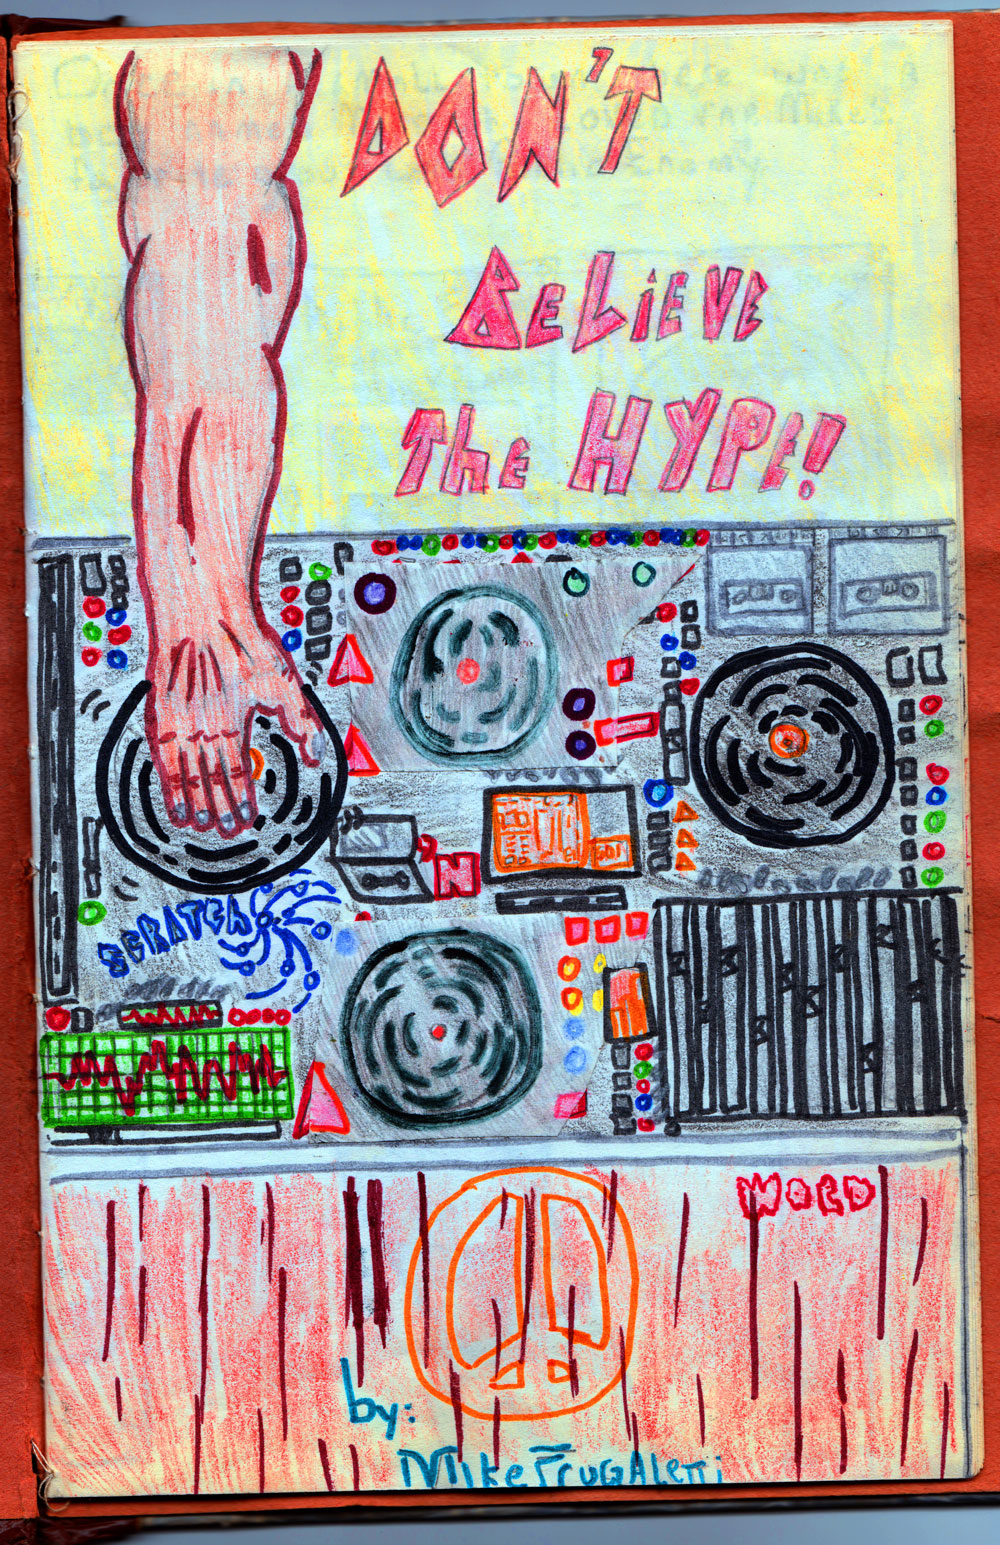 DON'T
BeLiEVE
The HYPE!
'N
SCRATCH
WORD
by:
Mike FrugAletti